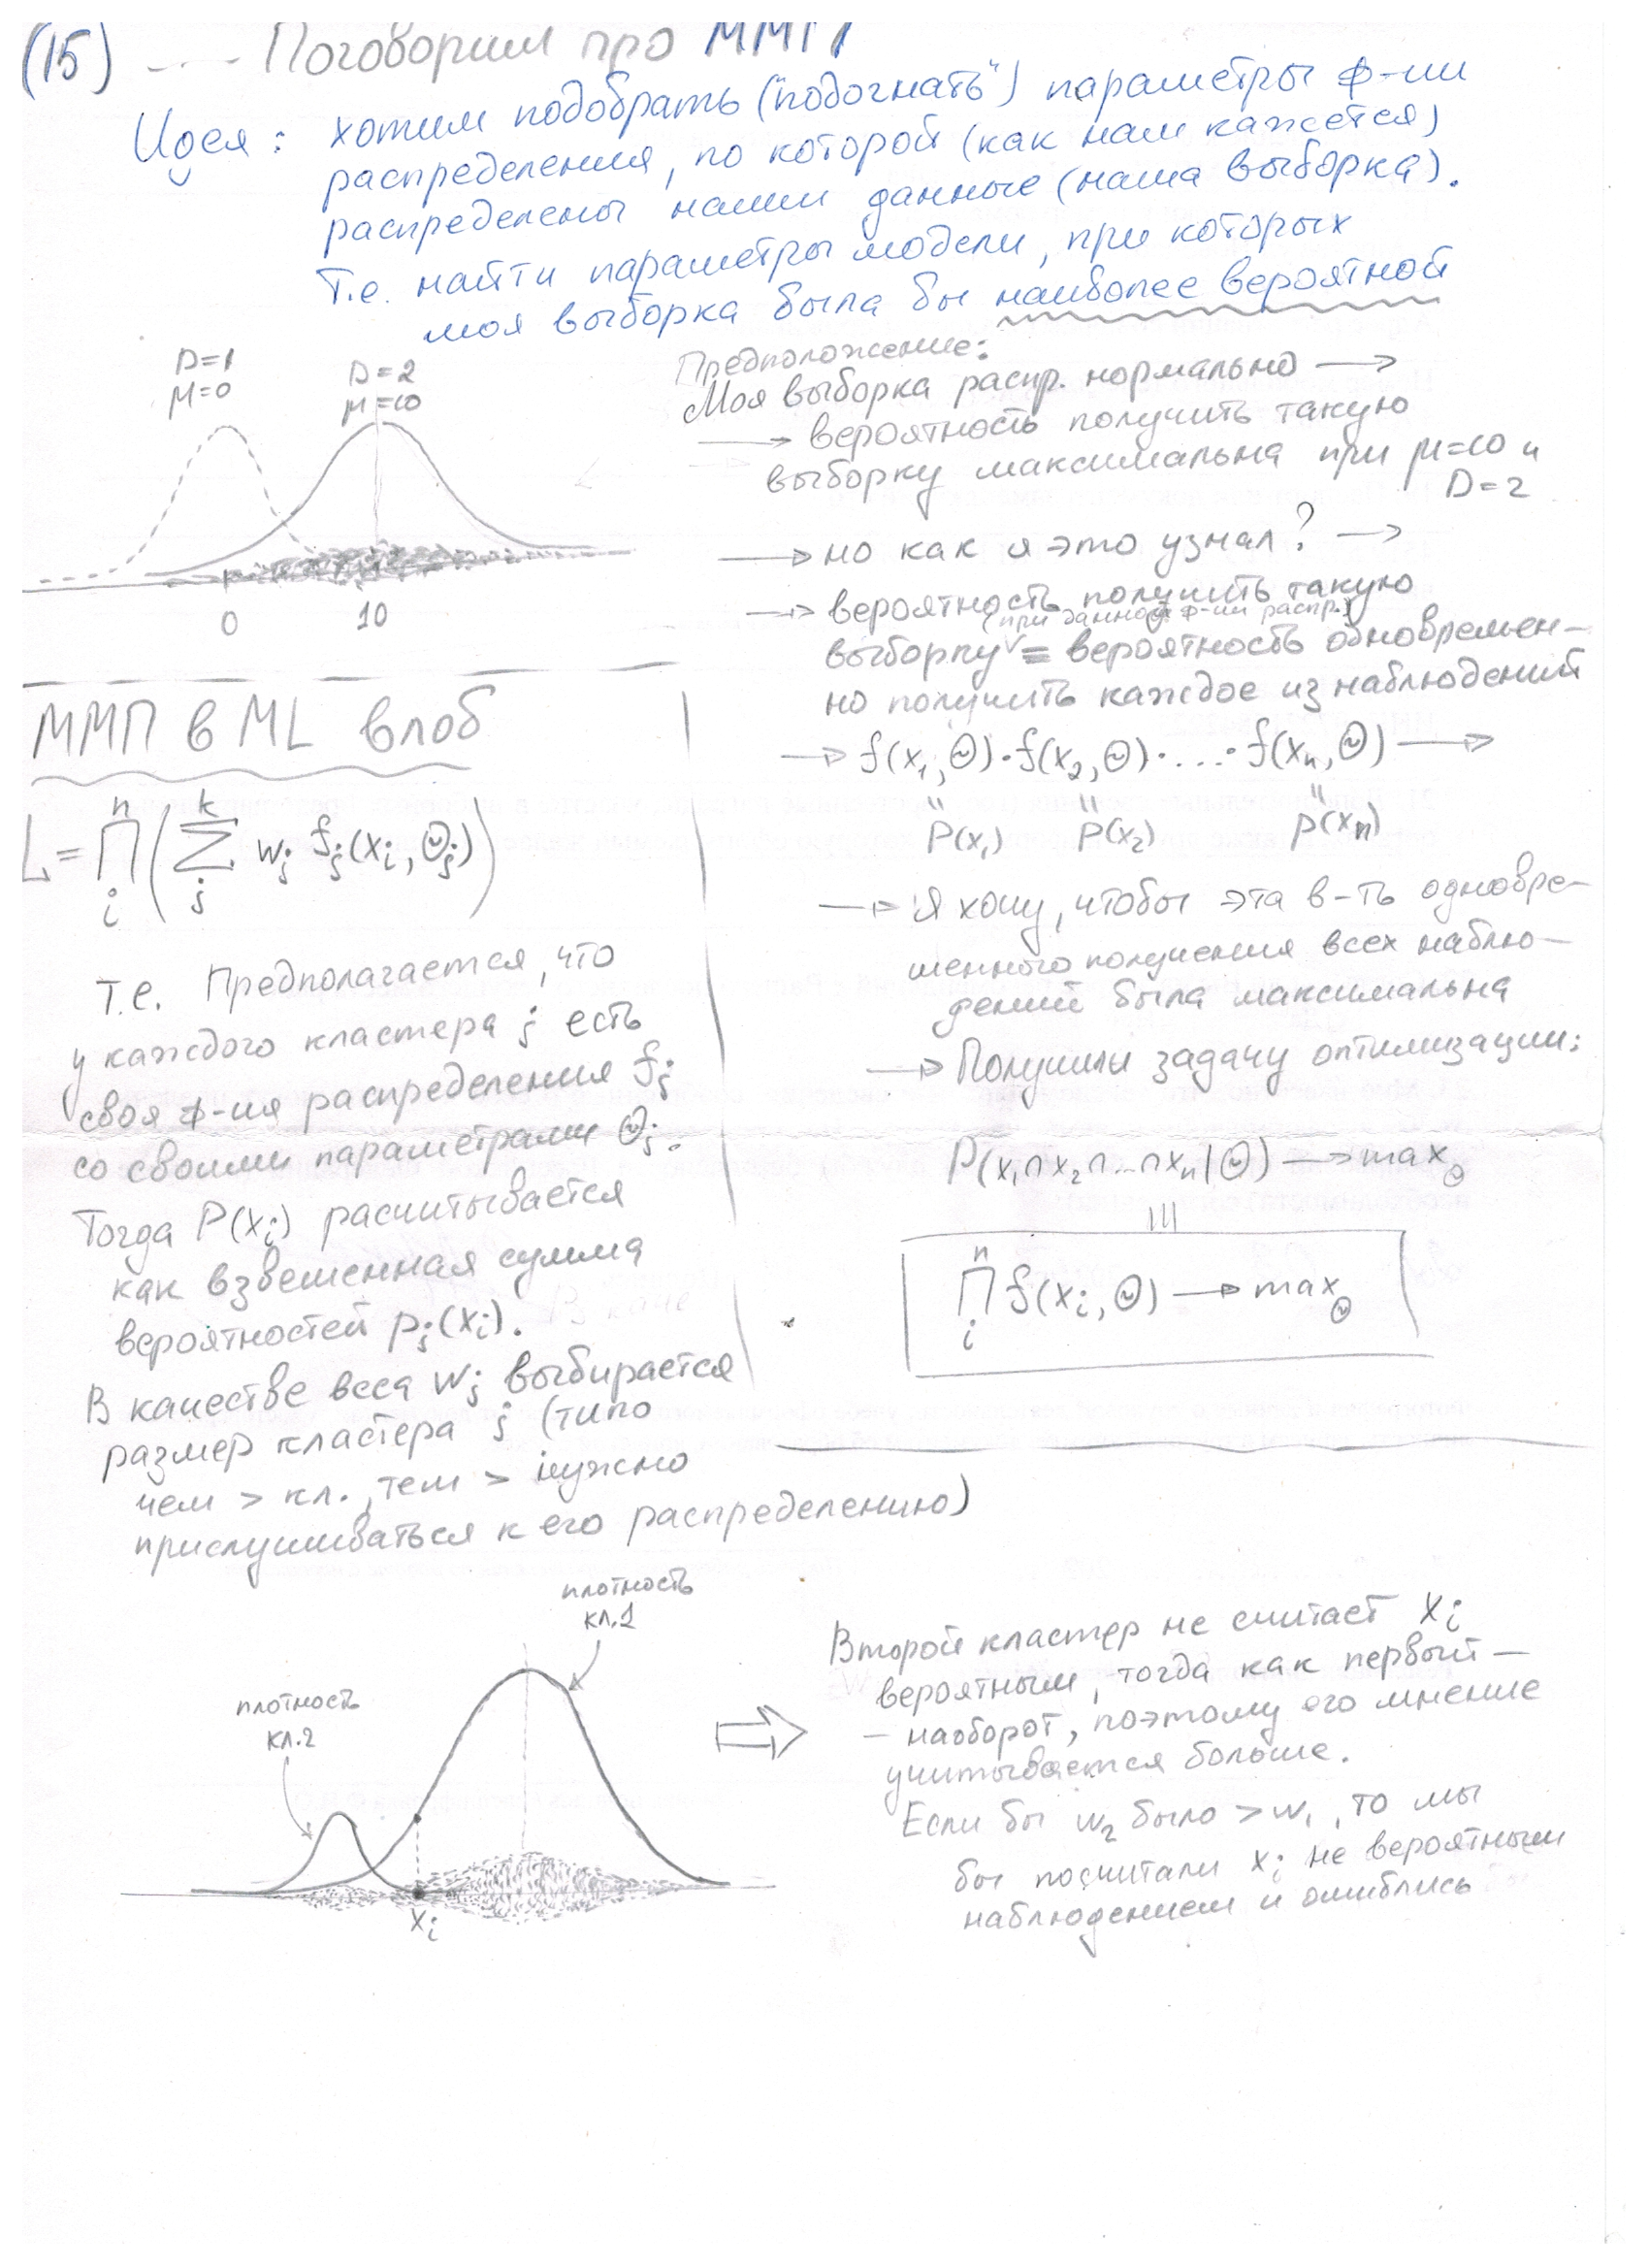 (15) ---- Поговорим про ММП
Идея: хотим подобрать ("подогнать") параметры ф-ии
распределения, по которой (как нам кажется)
распределены наши данные (наша выборка).
Т.е. найти параметры модели, при которых
моя выборка была бы наиболее вероятной
D=1
μ=0
D=2
μ=10
0
10
Предположение:
Моя выборка распр. нормально →
→ вероятность получить такую
выборку максимальна при μ=10 и
D=2
→ но как я это узнал? →
→ вероятность получить такую
(при данной ф-ии распр.)
выборку = вероятность одновремен-
но получить каждое из наблюдений
→ f(x₁,Θ)·f(x₂,Θ)·...·f(xₙ,Θ) →
" " "
P(x₁) P(x₂) p(xₙ)
→ Я хочу, чтобы эта в-ть одновре-
менного получения всех наблю-
дений была максимальна
→ Получили задачу оптимизации:
P(x₁∩x₂∩...∩xₙ|Θ) → max Θ
|||
n
∏ f(xᵢ,Θ) → max Θ
i
ММП в ML влоб
n k
L = ∏ (∑ wⱼ fⱼ(xᵢ, Θⱼ))
i j
т.е. Предполагается, что
у каждого кластера j есть
своя ф-ия распределения fⱼ
со своими параметрами Θⱼ.
Тогда P(xᵢ) расчитывается
как взвешенная сумма
вероятностей pⱼ(xᵢ).
В качестве веса wⱼ выбирается
размер кластера j (типо
чем > кл., тем > нужно
прислушиваться к его распределению)
плотность
кл.1
плотность
кл.2
xᵢ
Второй кластер не считает xᵢ
вероятным, тогда как первый –
– наоборот, поэтому его мнение
учитывается больше.
Если бы w₂ было > w₁, то мы
бы посчитали xᵢ не вероятным
наблюдением и ошиблись